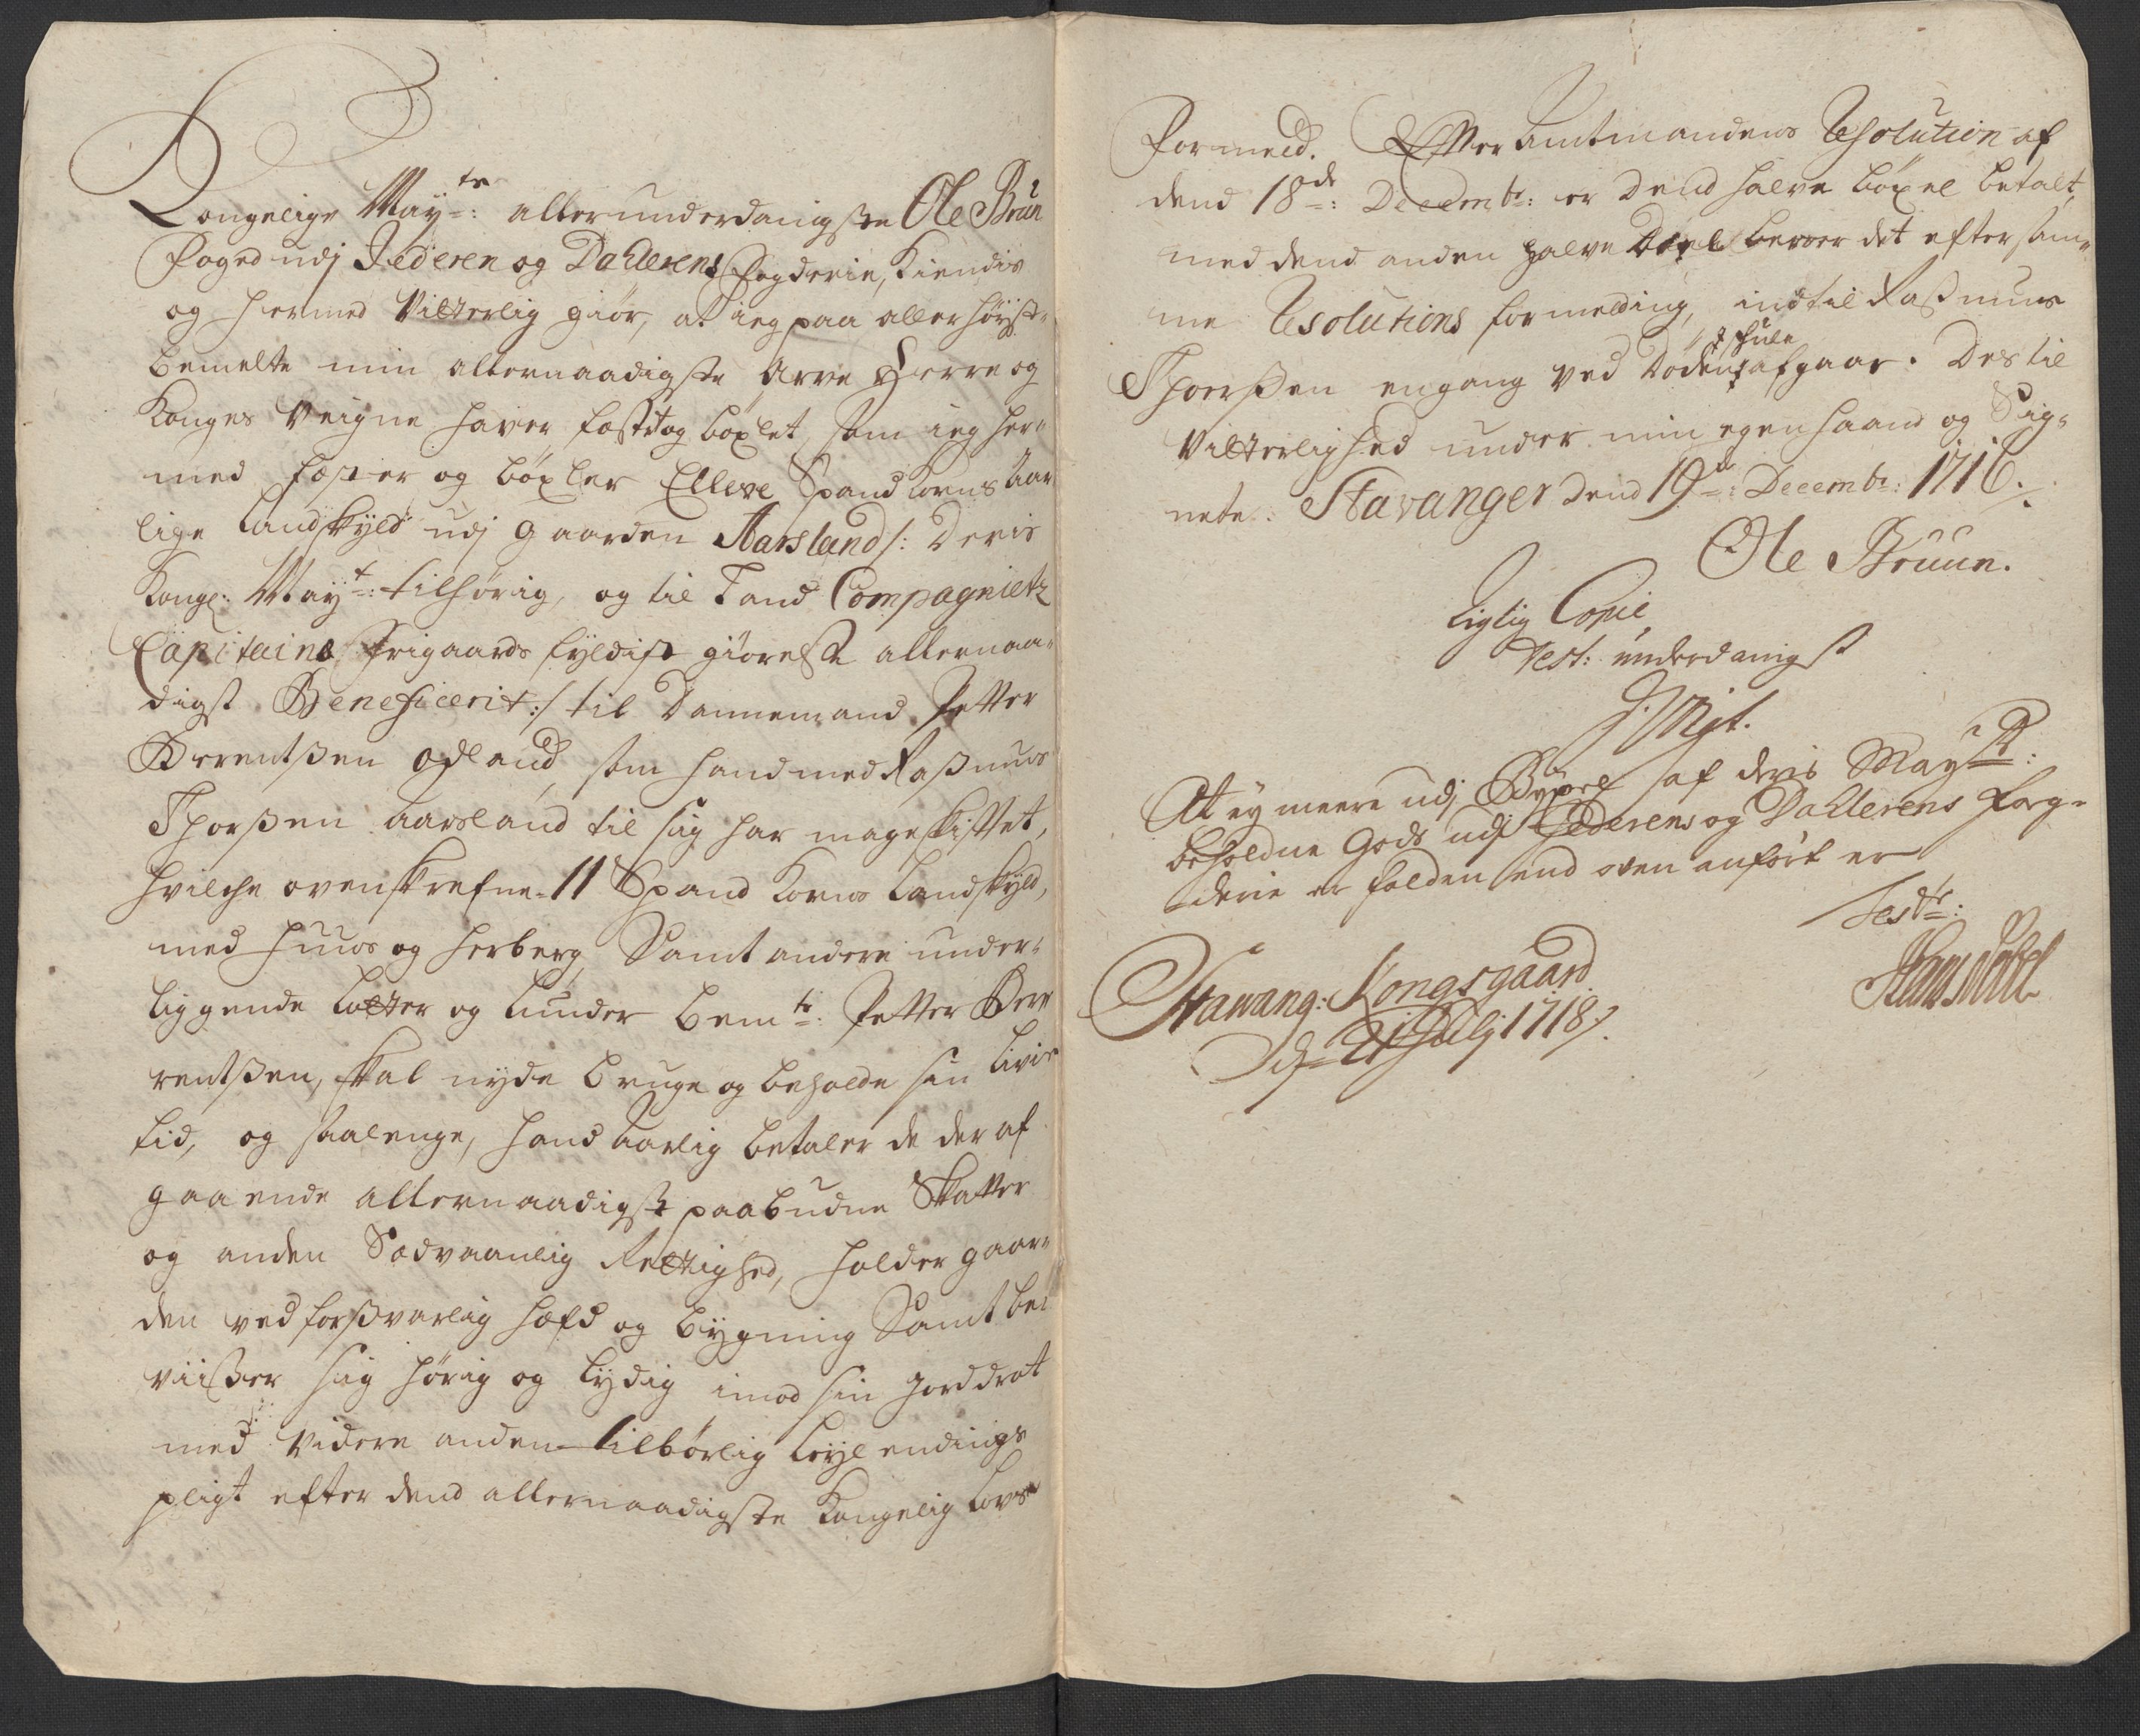 Kongelige May.te: allerunderdanigste Ole Brun
Foged udj Jederen og Dahlerens Fogderie, Kiendis
og hermed Vitterlig giør, at ieg paa allerhøyst-
bemelte min allernaadigste Arve Herre og
Konges Veigne haver fæst og bøxlet, som ieg her-
med fæster og bøxler Elleve Spand Korns Aar
lige Landskyld udj gaarden Aarsland /: Deris
Kongl: May.t: tilhørig, og til Land Compagniets
Capitaine Frigaards fyldist giørelse allernaa-
digst Beneficerit :/ til Dannemand Petter
Berentßen Ofland, som hand med Raßmus
Thorßen Aarsland til sig har mageskiftet,
hvilche ovenskrefne 11 Spand Korns Landskyld,
med Huus og Herberg, Samt andere under-
liggende Lotter og Lunder bem.te: Petter Ber
rentßen, skal nyde bruge og beholde sin Livis
tid, og saalenge, hand Aarlig betaler de der af
gaaende allernaadigst paabudne Skatter
og anden Sædvaanlig Rettighed, holder gaar-
den ved forßvarlig hæfd og bygning Samt be-
viißer sig hørig og lydig imod sin Jorddrot
med videre anden tilbørlig Leylendings
pligt efter dend allernaadigste Kongelig Lovs
Formeld. Efter Amtmandens Resolution af
dend 18de: Decembr: er dend halve bøxel betalt,
med dend anden halve Bøxel beroer det efter sam-
me Resolutions formelding, indtil Raßmus
Thorßen engang ved Døden afgaar. Des til
skulle
Vitterlighed under min egen haand og Sig-
nete. Stavanger dend 19de: Decembr: 1716.
Ole Bruun.
Rigtig Copie,
Test: underdanigst
At ey meere udj Bøxel af deris May.st:
beholdne Gods udj Jederens og Dallerens Fog-
derie er falden end oven anført er
Test:
Stawang: Kongsgaard
d. 21 Julij 1718.